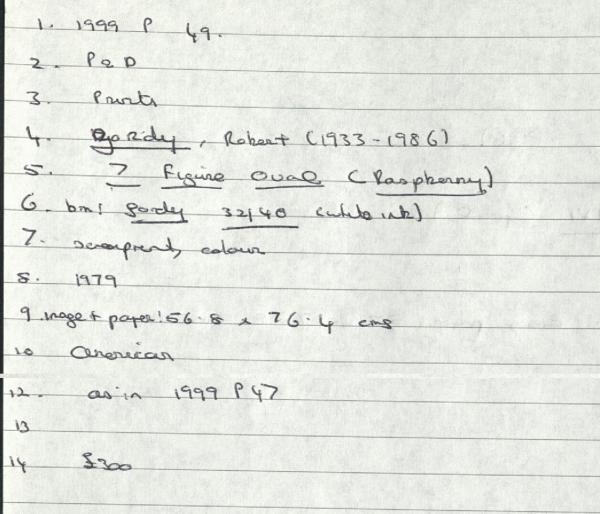 1. 1999 P 49.
2. P&D
3. Prints
4. Gordy, Robert (1933-1986)
5. 7 Figure Oval (Raspberry)
6. bm: gordy 32/40 (white ink)
7. screenprint, colour
8. 1979
9. image + paper: 56.8 x 76.4 cms
10 American
12. as in 1999 P 47
13
14 £300